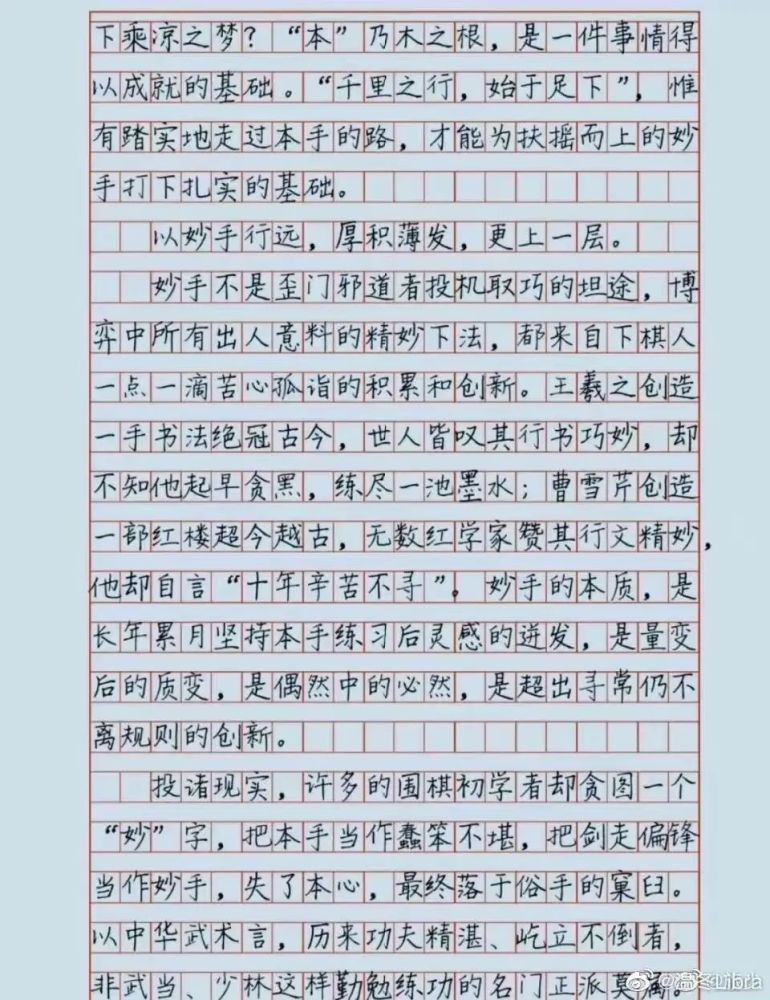 下乘凉之梦？“本”乃木之根，是一件事情得
以成就的基础。“千里之行，始于足下”，惟
有踏实地走过本手的路，才能为扶摇而上的妙
手打下扎实的基础。
以妙手行远，厚积薄发，更上一层。
妙手不是歪门邪道者投机取巧的坦途，博
弈中所有出人意料的精妙下法，都来自下棋人
一点一滴苦心孤诣的积累和创新。王羲之创造
一手书法绝冠古今，世人皆叹其行书巧妙，却
不知他起早贪黑，练尽一池墨水；曹雪芹创造
一部红楼超今越古，无数红学家赞其行文精妙，
他却自言“十年辛苦不寻”。妙手的本质，是
长年累月坚持本手练习后灵感的迸发，是量变
后的质变，是偶然中的必然，是超出寻常仍不
离规则的创新。
投诸现实，许多的围棋初学者却贪图一个
“妙”字，把本手当作蠢笨不堪，把剑走偏锋
当作妙手，失了本心，最终落于俗手的窠臼。
以中华武术言，历来功夫精湛、屹立不倒者，
非武当、少林这样勤勉练功的名门正派莫属
@温冬Libra